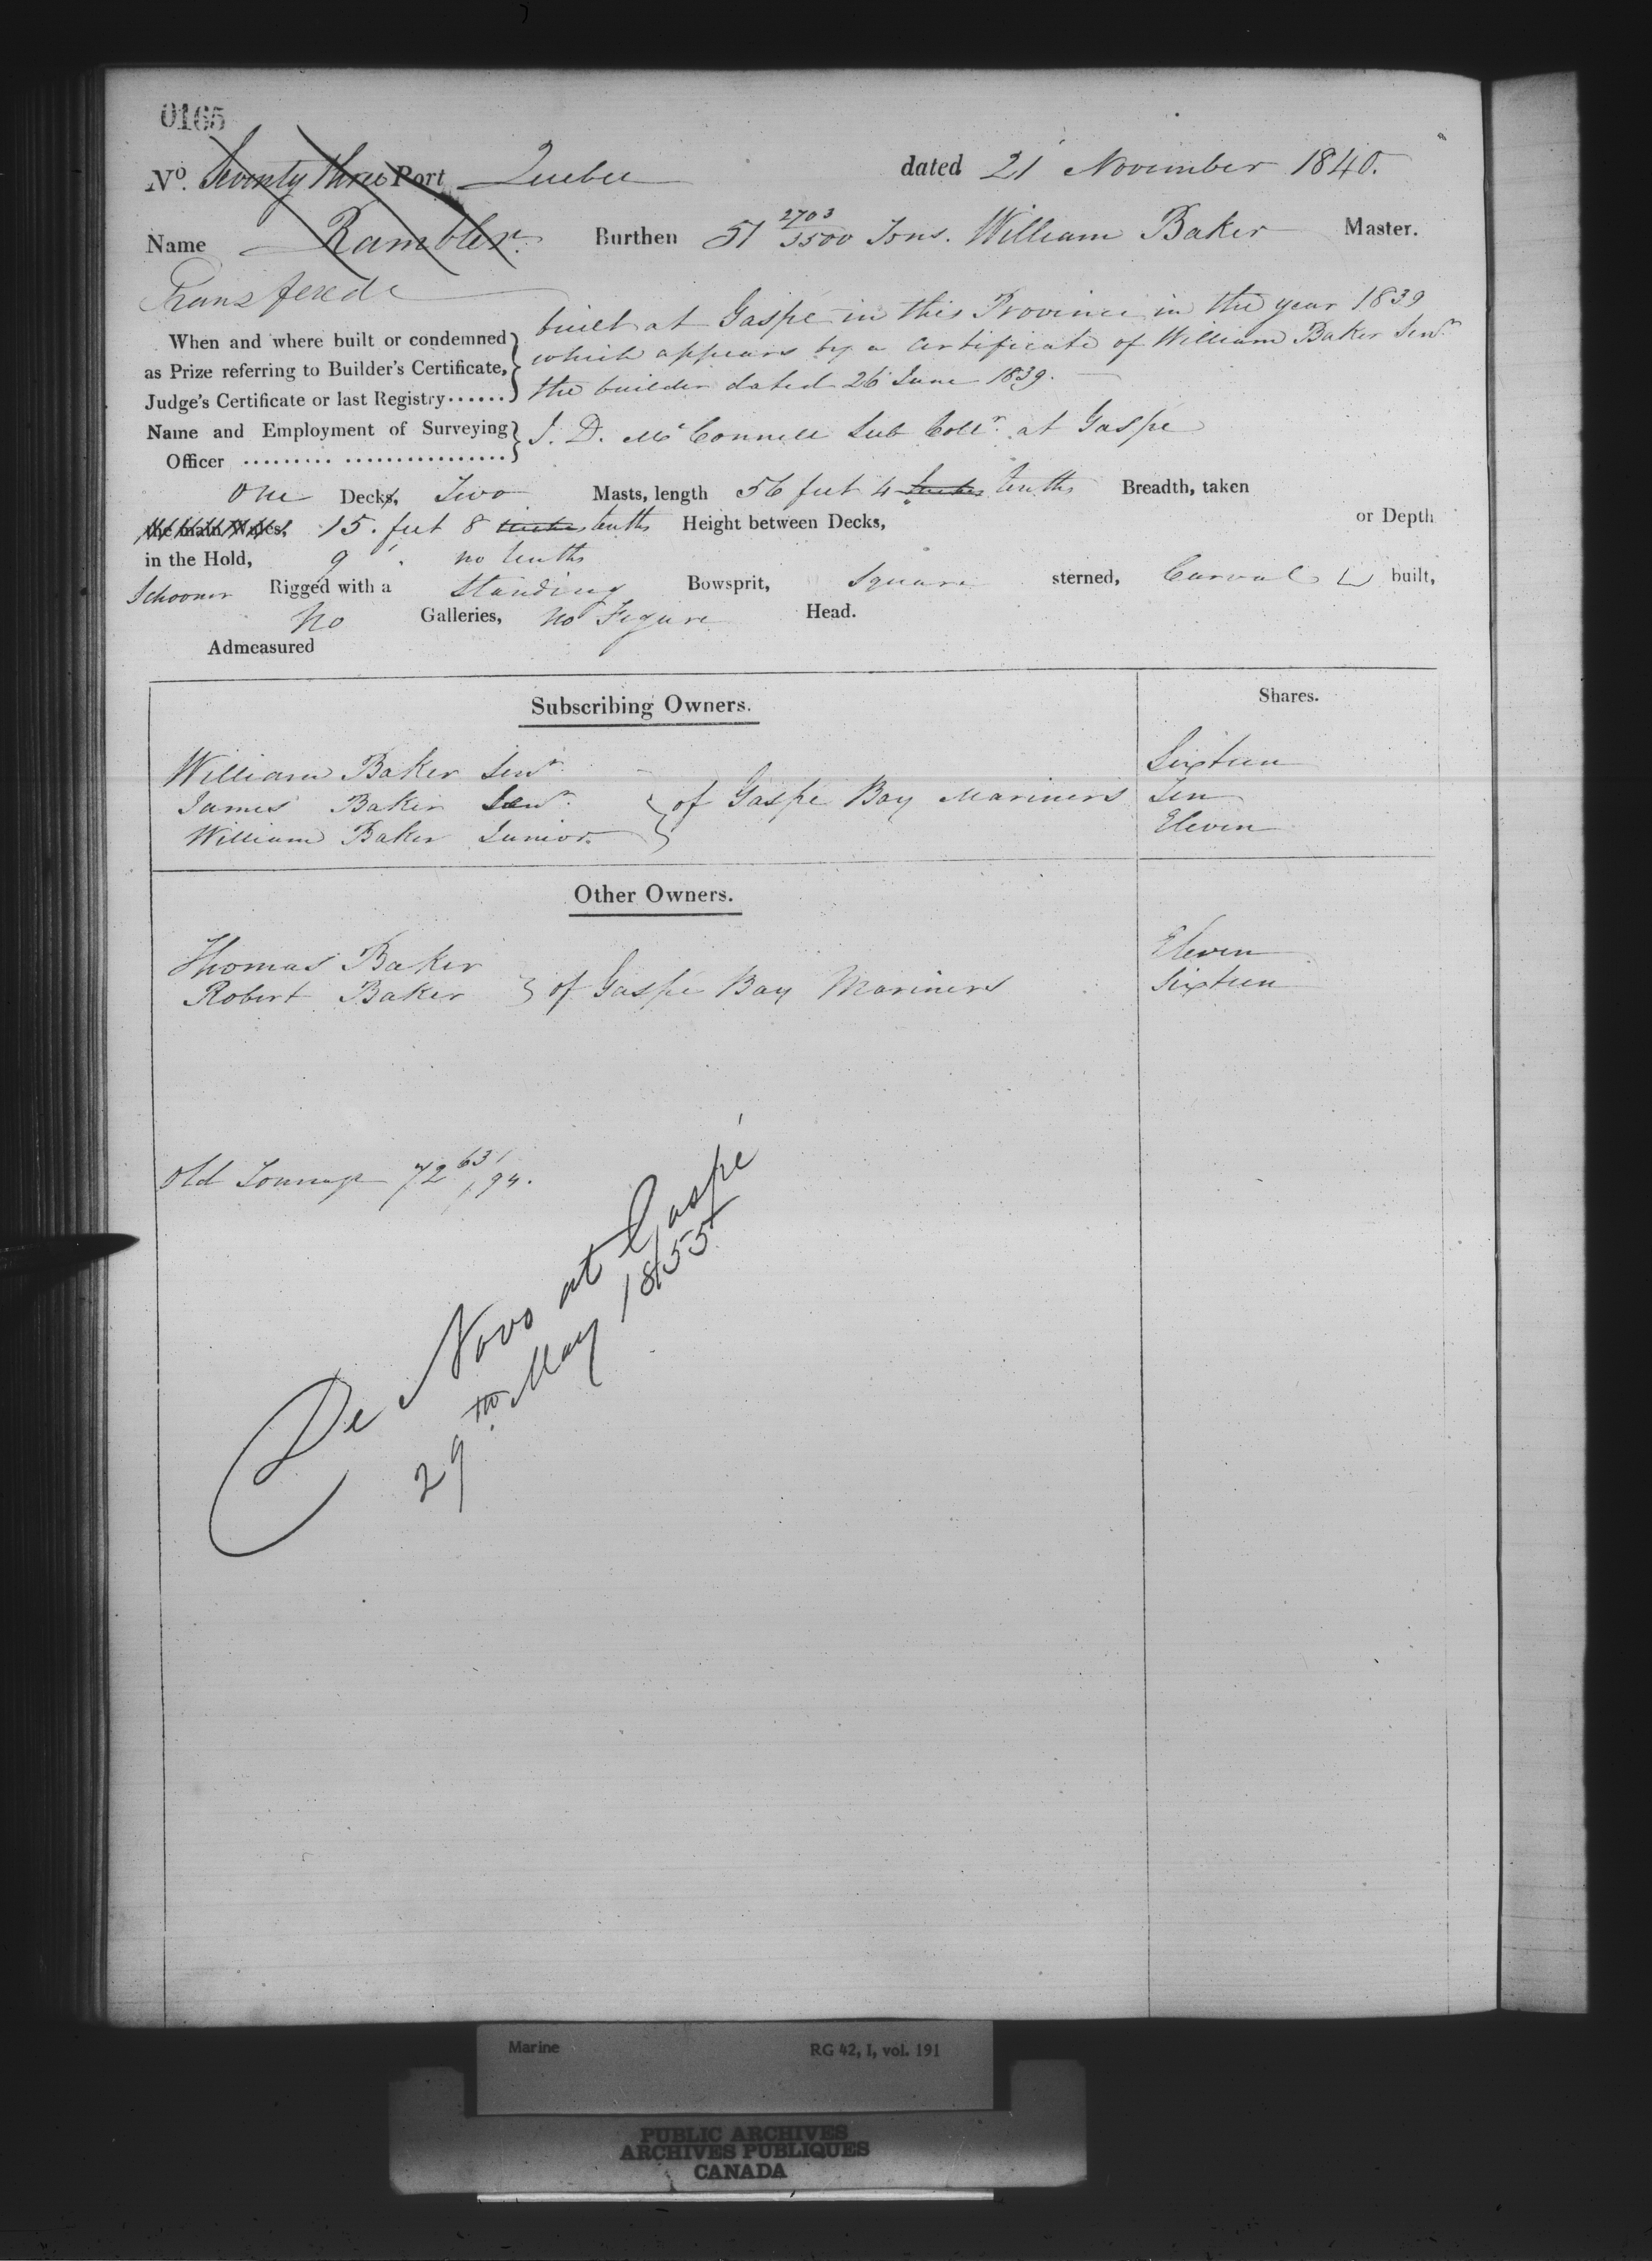 0165
No. Seventy three Port Quebec dated 21 November 1840.
Name Rambler. Burthen 51 2703/3500 Tons. William Baker Master.
Transfered
When and where built or condemned as Prize referring to Builder's Certificate, Judge's Certificate or last Registry......
built at Gaspé in this Province in the year 1839
which appears by a Certificate of William Baker Senr
the builder dated 26 June 1839.
Name and Employment of Surveying Officer ......... ................
J. D. McConnell Sub Collr. at Gaspé
One Decks, Two Masts, length 56 feet 4 inches tenths Breadth, taken
the main Wales, 15. feet 8 inches tenths Height between Decks, or Depth
in the Hold, 9 no tenths
Schooner Rigged with a Standing Bowsprit, Square sterned, Carvel built,
No Galleries, no Figure Head.
Admeasured
Subscribing Owners. Shares.
William Baker Senr. Sixteen
James Baker Senr. of Gaspé Bay Mariners Ten
William Baker Junior. Eleven
Other Owners.
Thomas Baker Eleven
Robert Baker of Gaspé Bay Mariners Sixteen
Old Tonnage 72 63/94.
De Novo at Gaspé
29th May 1855
Marine RG 42, I, vol. 191
PUBLIC ARCHIVES
ARCHIVES PUBLIQUES
CANADA